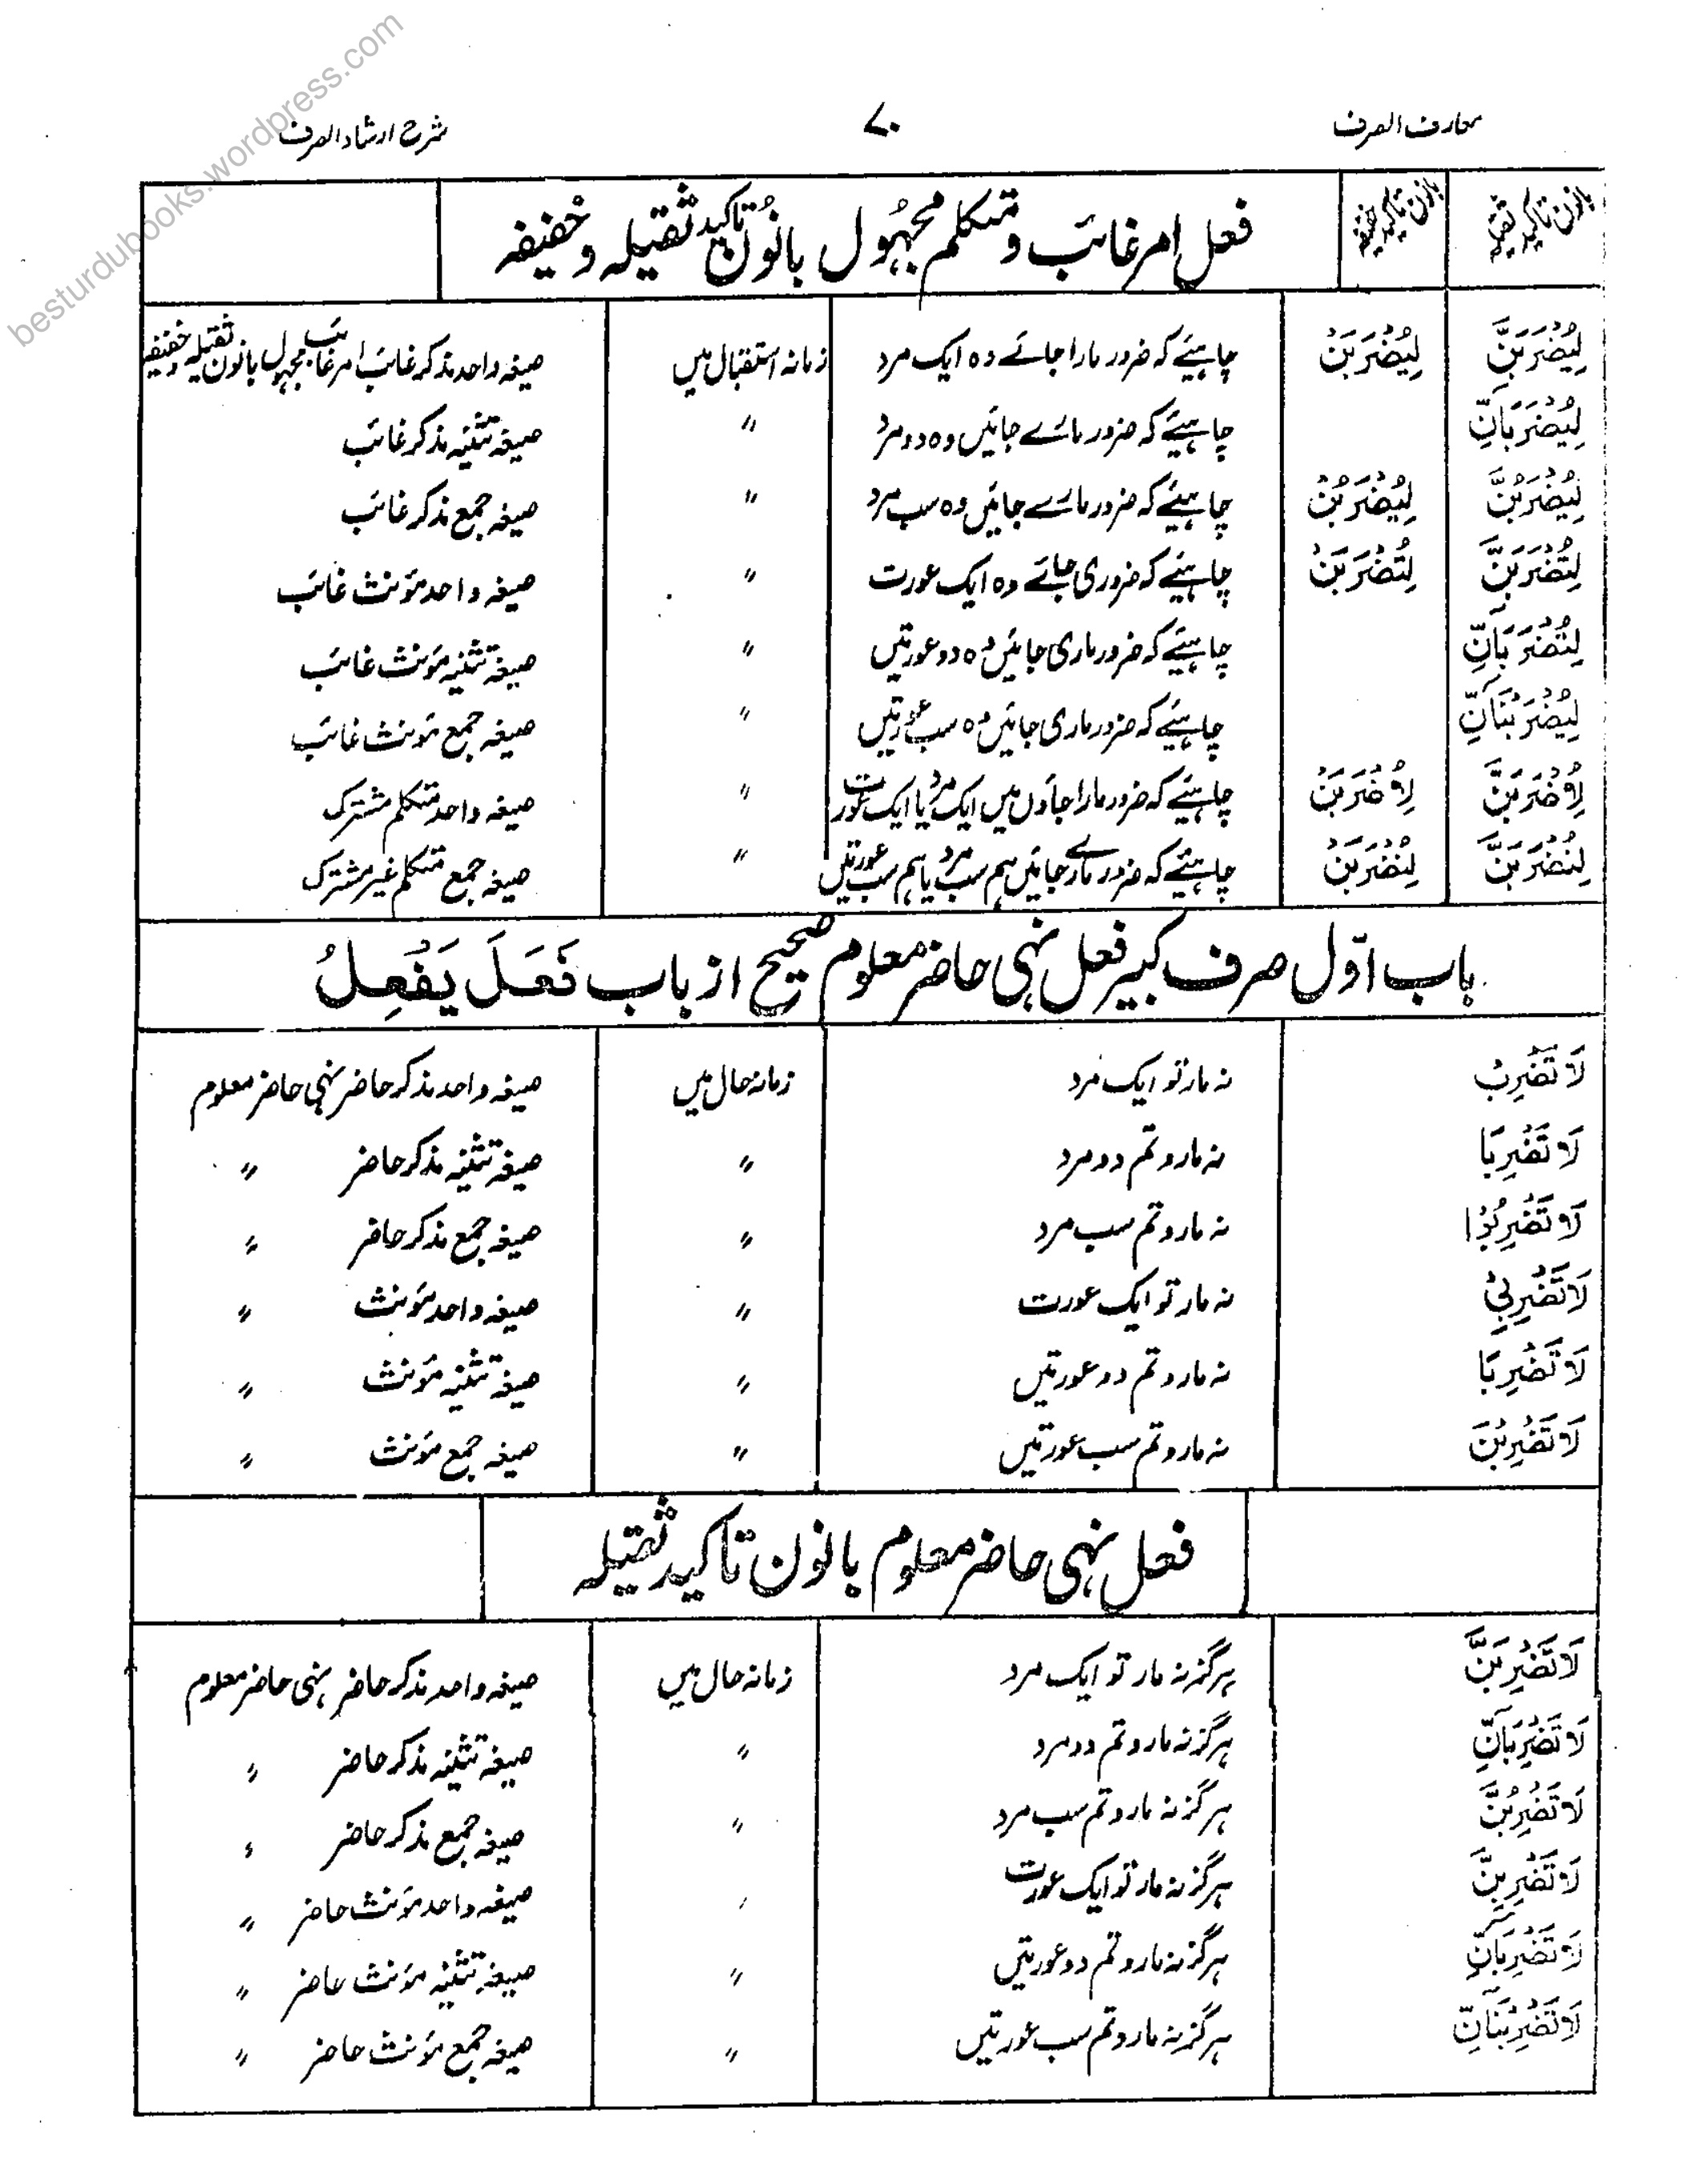 معارف الصرف ۷۰ شرح ارشاد الصرف
besturdubooks.wordpress.com
بانون تاکید ثقیلہ بانون تاکید خفیفہ فعل امر غائب و متکلم مجہُول بانُون تاکید ثقیلہ و خفیفہ
لِيُضْرَبَنَّ لِيُضْرَبَنْ چاہیئے کہ ضرور مارا جائے وہ ایک مرد زمانہ استقبال میں صیغہ واحد مذکر غائب امر غائب مجہول بانون ثقیلہ و خفیفہ
لِيُضْرَبَانِّ چاہیئے کہ ضرور مارے جائیں وہ دو مرد 〃 صیغہ تثنیہ مذکر غائب
لِيُضْرَبُنَّ لِيُضْرَبُنْ چاہیئے کہ ضرور مارے جائیں وہ سب مرد 〃 صیغہ جمع مذکر غائب
لِتُضْرَبَنَّ لِتُضْرَبَنْ چاہیئے کہ ضروری جائے وہ ایک عورت 〃 صیغہ واحد مؤنث غائب
لِتُضْرَبَانِّ چاہیئے کہ ضرور ماری جائیں وہ دو عورتیں 〃 صیغہ تثنیہ مؤنث غائب
لِيُضْرَبْنَانِّ چاہیئے کہ ضرور ماری جائیں وہ سب عورتیں 〃 صیغہ جمع مؤنث غائب
لِاُضْرَبَنَّ لِاُضْرَبَنْ چاہیئے کہ ضرور مارا جاؤں میں ایک مرد یا ایک عورت 〃 صیغہ واحد متکلم مشترک
لِنُضْرَبَنَّ لِنُضْرَبَنْ چاہیئے کہ ضرور مارے جائیں ہم سب مرد یا ہم سب عورتیں 〃 صیغہ جمع متکلم غیر مشترک
باب اوّل صرف کبیر فعل نہی حاضر معلوم صحیح از باب فَعَلَ يَفْعِلُ
لَا تَضْرِبْ نہ مار تو ایک مرد زمانہ حال میں صیغہ واحد مذکر حاضر نہی حاضر معلوم
لَا تَضْرِبَا نہ مارو تم دو مرد 〃 صیغہ تثنیہ مذکر حاضر 〃
لَا تَضْرِبُوْا نہ مارو تم سب مرد 〃 صیغہ جمع مذکر حاضر 〃
لَا تَضْرِبِيْ نہ مار تو ایک عورت 〃 صیغہ واحد مؤنث 〃
لَا تَضْرِبَا نہ مارو تم دو عورتیں 〃 صیغہ تثنیہ مؤنث 〃
لَا تَضْرِبْنَ نہ مارو تم سب عورتیں 〃 صیغہ جمع مؤنث 〃
فعل نہی حاضر معلوم بانون تاکید ثقیلہ
لَا تَضْرِبَنَّ ہرگز نہ مار تو ایک مرد زمانہ حال میں صیغہ واحد مذکر حاضر نہی حاضر معلوم
لَا تَضْرِبَانِّ ہرگز نہ مارو تم دو مرد 〃 صیغہ تثنیہ مذکر حاضر 〃
لَا تَضْرِبُنَّ ہرگز نہ مارو تم سب مرد 〃 صیغہ جمع مذکر حاضر 〃
لَا تَضْرِبِنَّ ہرگز نہ مار تو ایک عورت 〃 صیغہ واحد مؤنث حاضر 〃
لَا تَضْرِبَانِّ ہرگز نہ مارو تم دو عورتیں 〃 صیغہ تثنیہ مؤنث حاضر 〃
لَا تَضْرِبْنَانِّ ہرگز نہ مارو تم سب عورتیں 〃 صیغہ جمع مؤنث حاضر 〃